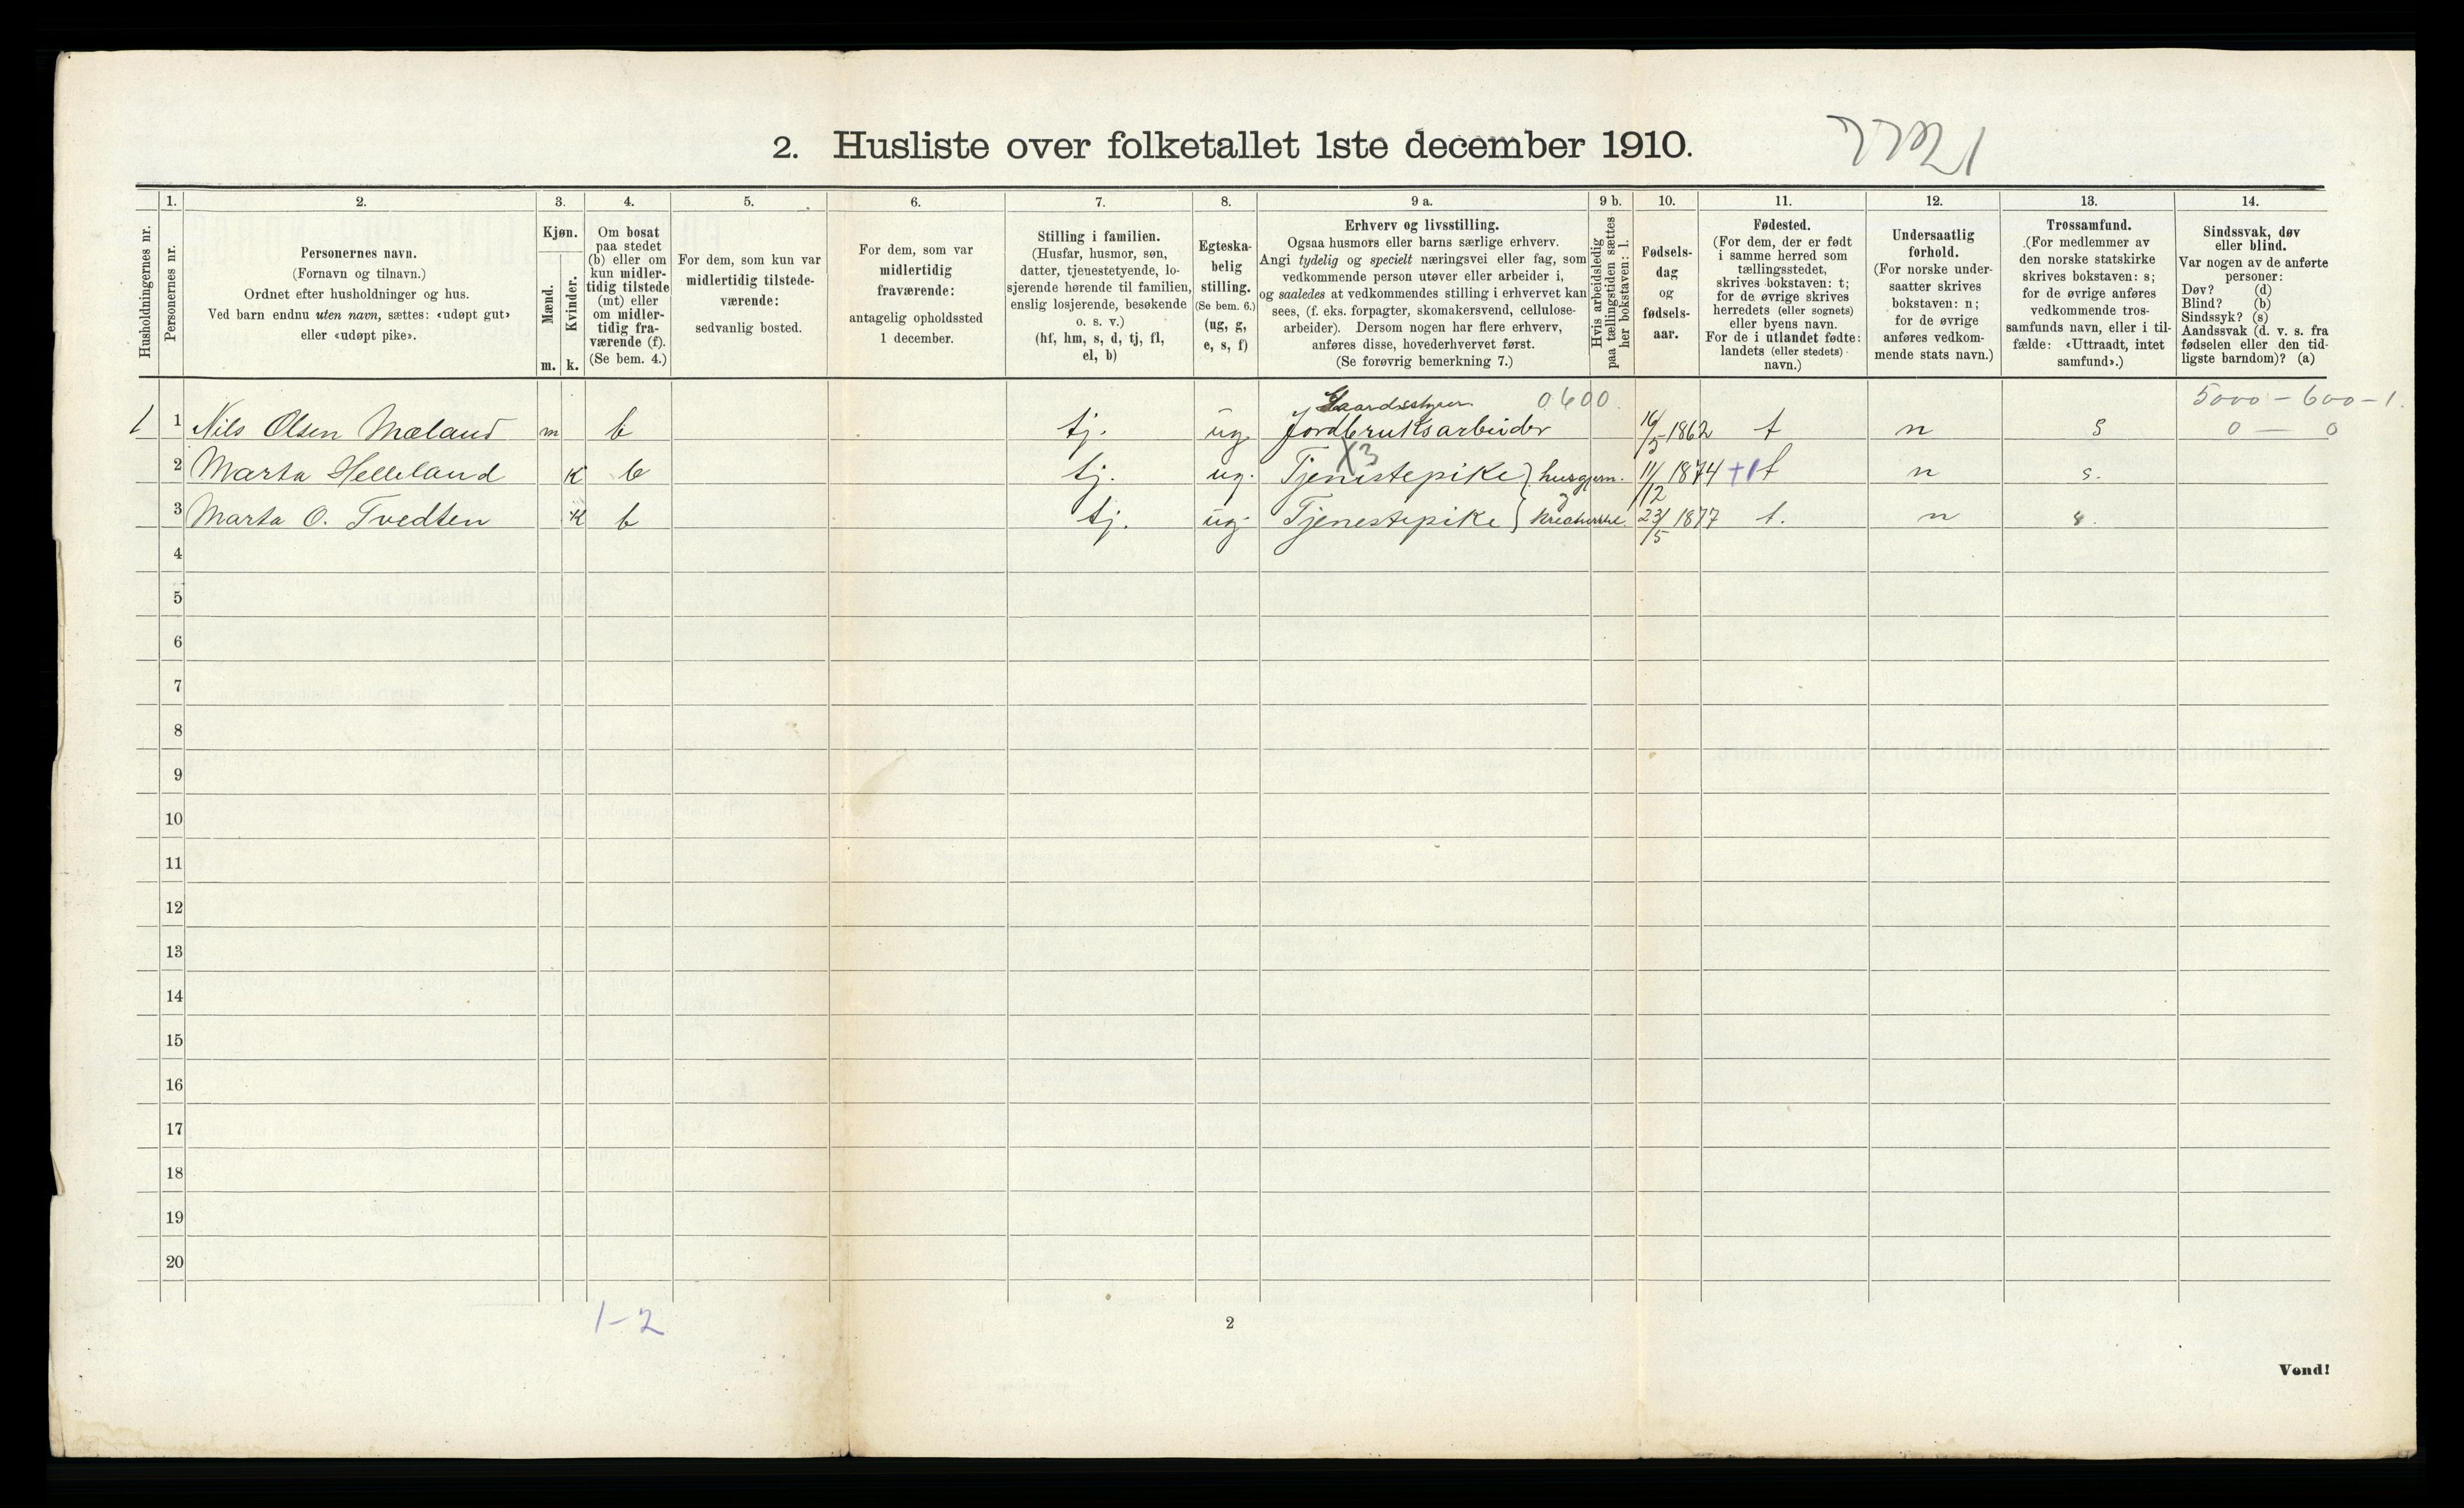 2. Husliste over folketallet 1ste december 1910.
Husholdningernes nr.
1.
Personernes nr.
2.
Personernes navn.
(Fornavn og tilnavn.)
Ordnet efter husholdninger og hus.
Ved barn endnu uten navn, sættes: «udøpt gut»
eller «udøpt pike».
3.
Kjøn.
Mænd.
m.
Kvinder.
k.
4.
Om bosat
paa stedet
(b) eller om
kun midler-
tidig tilstede
(mt) eller
om midler-
tidig fra-
værende (f).
(Se bem. 4.)
5.
For dem, som kun var
midlertidig tilstede-
værende:
sedvanlig bosted.
6.
For dem, som var
midlertidig
fraværende:
antagelig opholdssted
1 december.
7.
Stilling i familien.
(Husfar, husmor, søn,
datter, tjenestetyende, lo-
sjerende hørende til familien,
enslig losjerende, besøkende
o. s. v.)
(hf, hm, s, d, tj, fl,
el, b)
8.
Egteska-
belig
stilling.
(Se bem. 6.)
(ug, g,
e, s, f)
9 a.
Erhverv og livsstilling.
Ogsaa husmors eller barns særlige erhverv.
Angi tydelig og specielt næringsvei eller fag, som
vedkommende person utøver eller arbeider i,
og saaledes at vedkommendes stilling i erhvervet kan
sees, (f. eks. forpagter, skomakersvend, cellulose-
arbeider). Dersom nogen har flere erhverv,
anføres disse, hovederhvervet først.
(Se forøvrig bemerkning 7.)
9 b.
Hvis arbeidsledig
paa tællingstiden sættes
her bokstaven: l.
10.
Fødsels-
dag
og
fødsels-
aar.
11.
Fødested.
(For dem, der er født
i samme herred som
tællingsstedet,
skrives bokstaven: t;
for de øvrige skrives
herredets (eller sognets)
eller byens navn.
For de i utlandet fødte:
landets (eller stedets)
navn.)
12.
Undersaatlig
forhold.
(For norske under-
saatter skrives
bokstaven: n;
for de øvrige
anføres vedkom-
mende stats navn.)
13.
Trossamfund.
(For medlemmer av
den norske statskirke
skrives bokstaven: s;
for de øvrige anføres
vedkommende tros-
samfunds navn, eller i til-
fælde: «Uttraadt, intet
samfund».)
14.
Sindssvak, døv
eller blind.
Var nogen av de anførte
personer:
Døv? (d)
Blind? (b)
Sindssyk? (s)
Aandssvak (d. v. s. fra
fødselen eller den tid-
ligste barndom)? (a)
Gaardsstyrer 0600. 5000 - 600 - 1.
1 1 Nils Olsen Mæland m b tj. ug. Jordbruksarbeider 16/5 1862 t n s 0 — 0
X3
2 Marta Helleland K b tj. ug. Tjenistepike } husgjern. 11/12 1874 +1 t n s.
3 Marta O. Tvedten K b tj. ug. Tjenestepike } 23/5 1877 t. n s.
4
5
6
7
8
9
10
11
12
13
14
15
16
17
18
19
20
1-2
2
Vend!